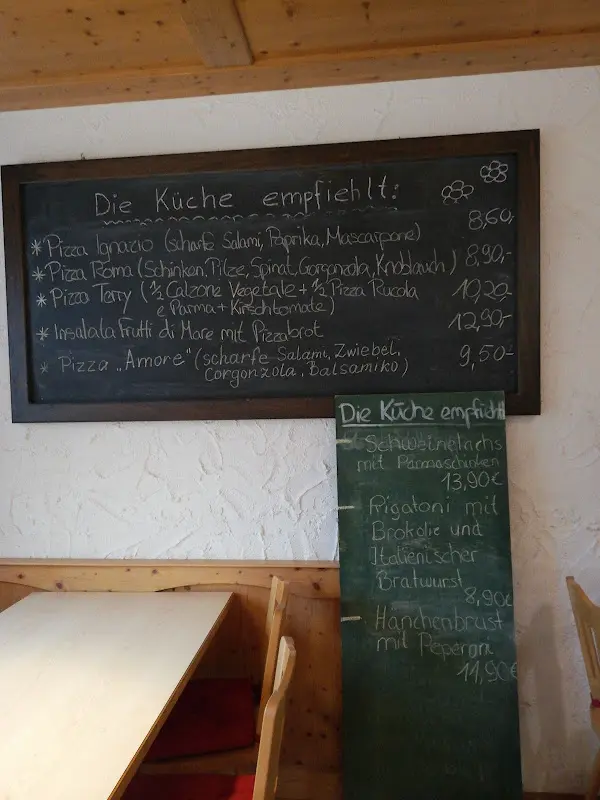 Die Küche empfiehlt:
* Pizza Ignazio (scharfe Salami, Paprika, Mascarpone) 8,60,-
* Pizza Roma (Schinken, Pilze, Spinat, Gorgonzola, Knoblauch) 8,90,-
* Pizza Terry (½ Calzone Vegetale + ½ Pizza Rucola 10,20,-
e Parma + Kirschtomate)
* Insalata Frutti di Mare mit Pizzabrot 12,90,-
* Pizza „Amore" (scharfe Salami, Zwiebel, 9,50-
Gorgonzola, Balsamiko)
Die Küche empfiehlt
- Schweinelachs
mit Parmaschinken
13,90€
- Rigatoni mit
Brokolie und
Italienischer
Bratwurst
8,90€
- Hänchenbrust
mit Peperoni
11,90€